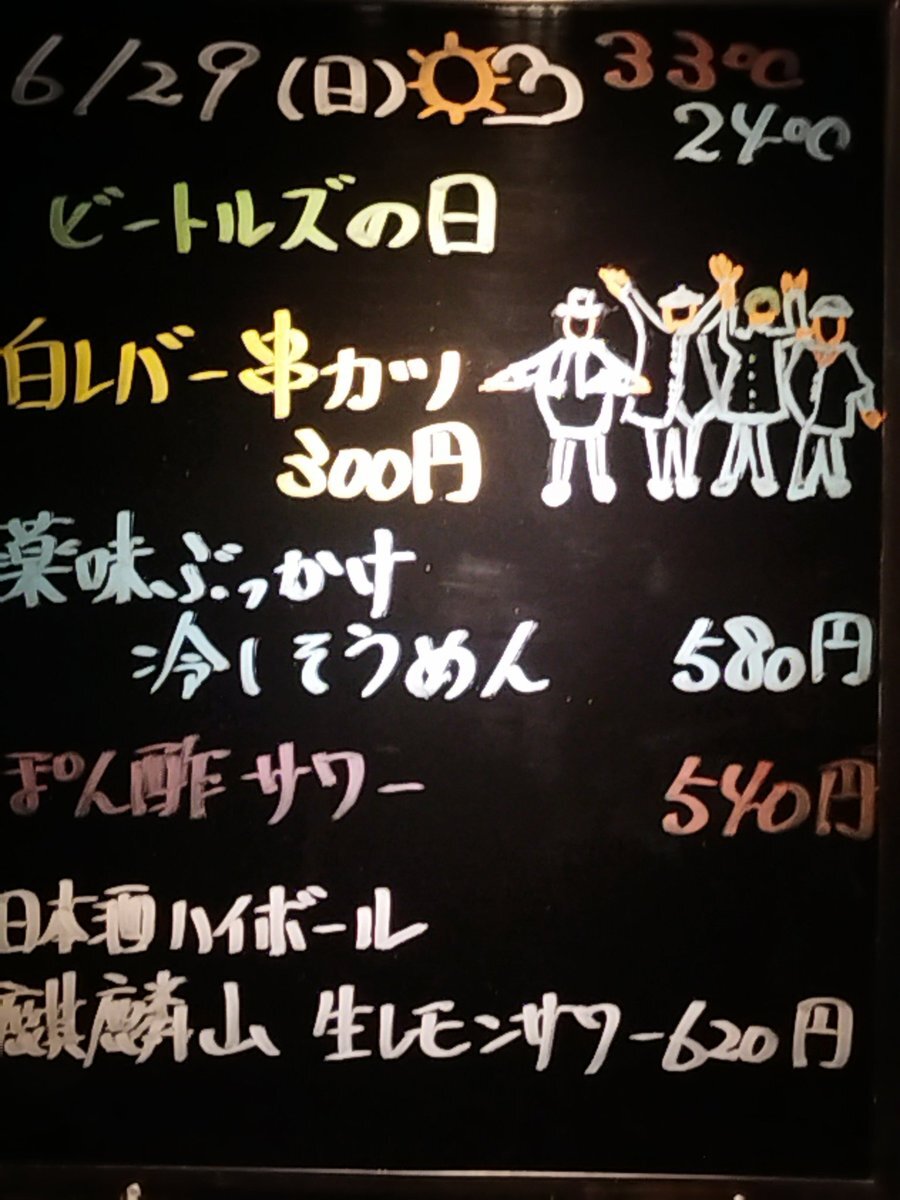 6/29(日) 33℃
24℃
ビートルズの日
白レバー串カツ
300円
薬味ぶっかけ
冷しそうめん 580円
ぽん酢サワー 540円
日本酒ハイボール
麒麟山 生レモンサワー620円